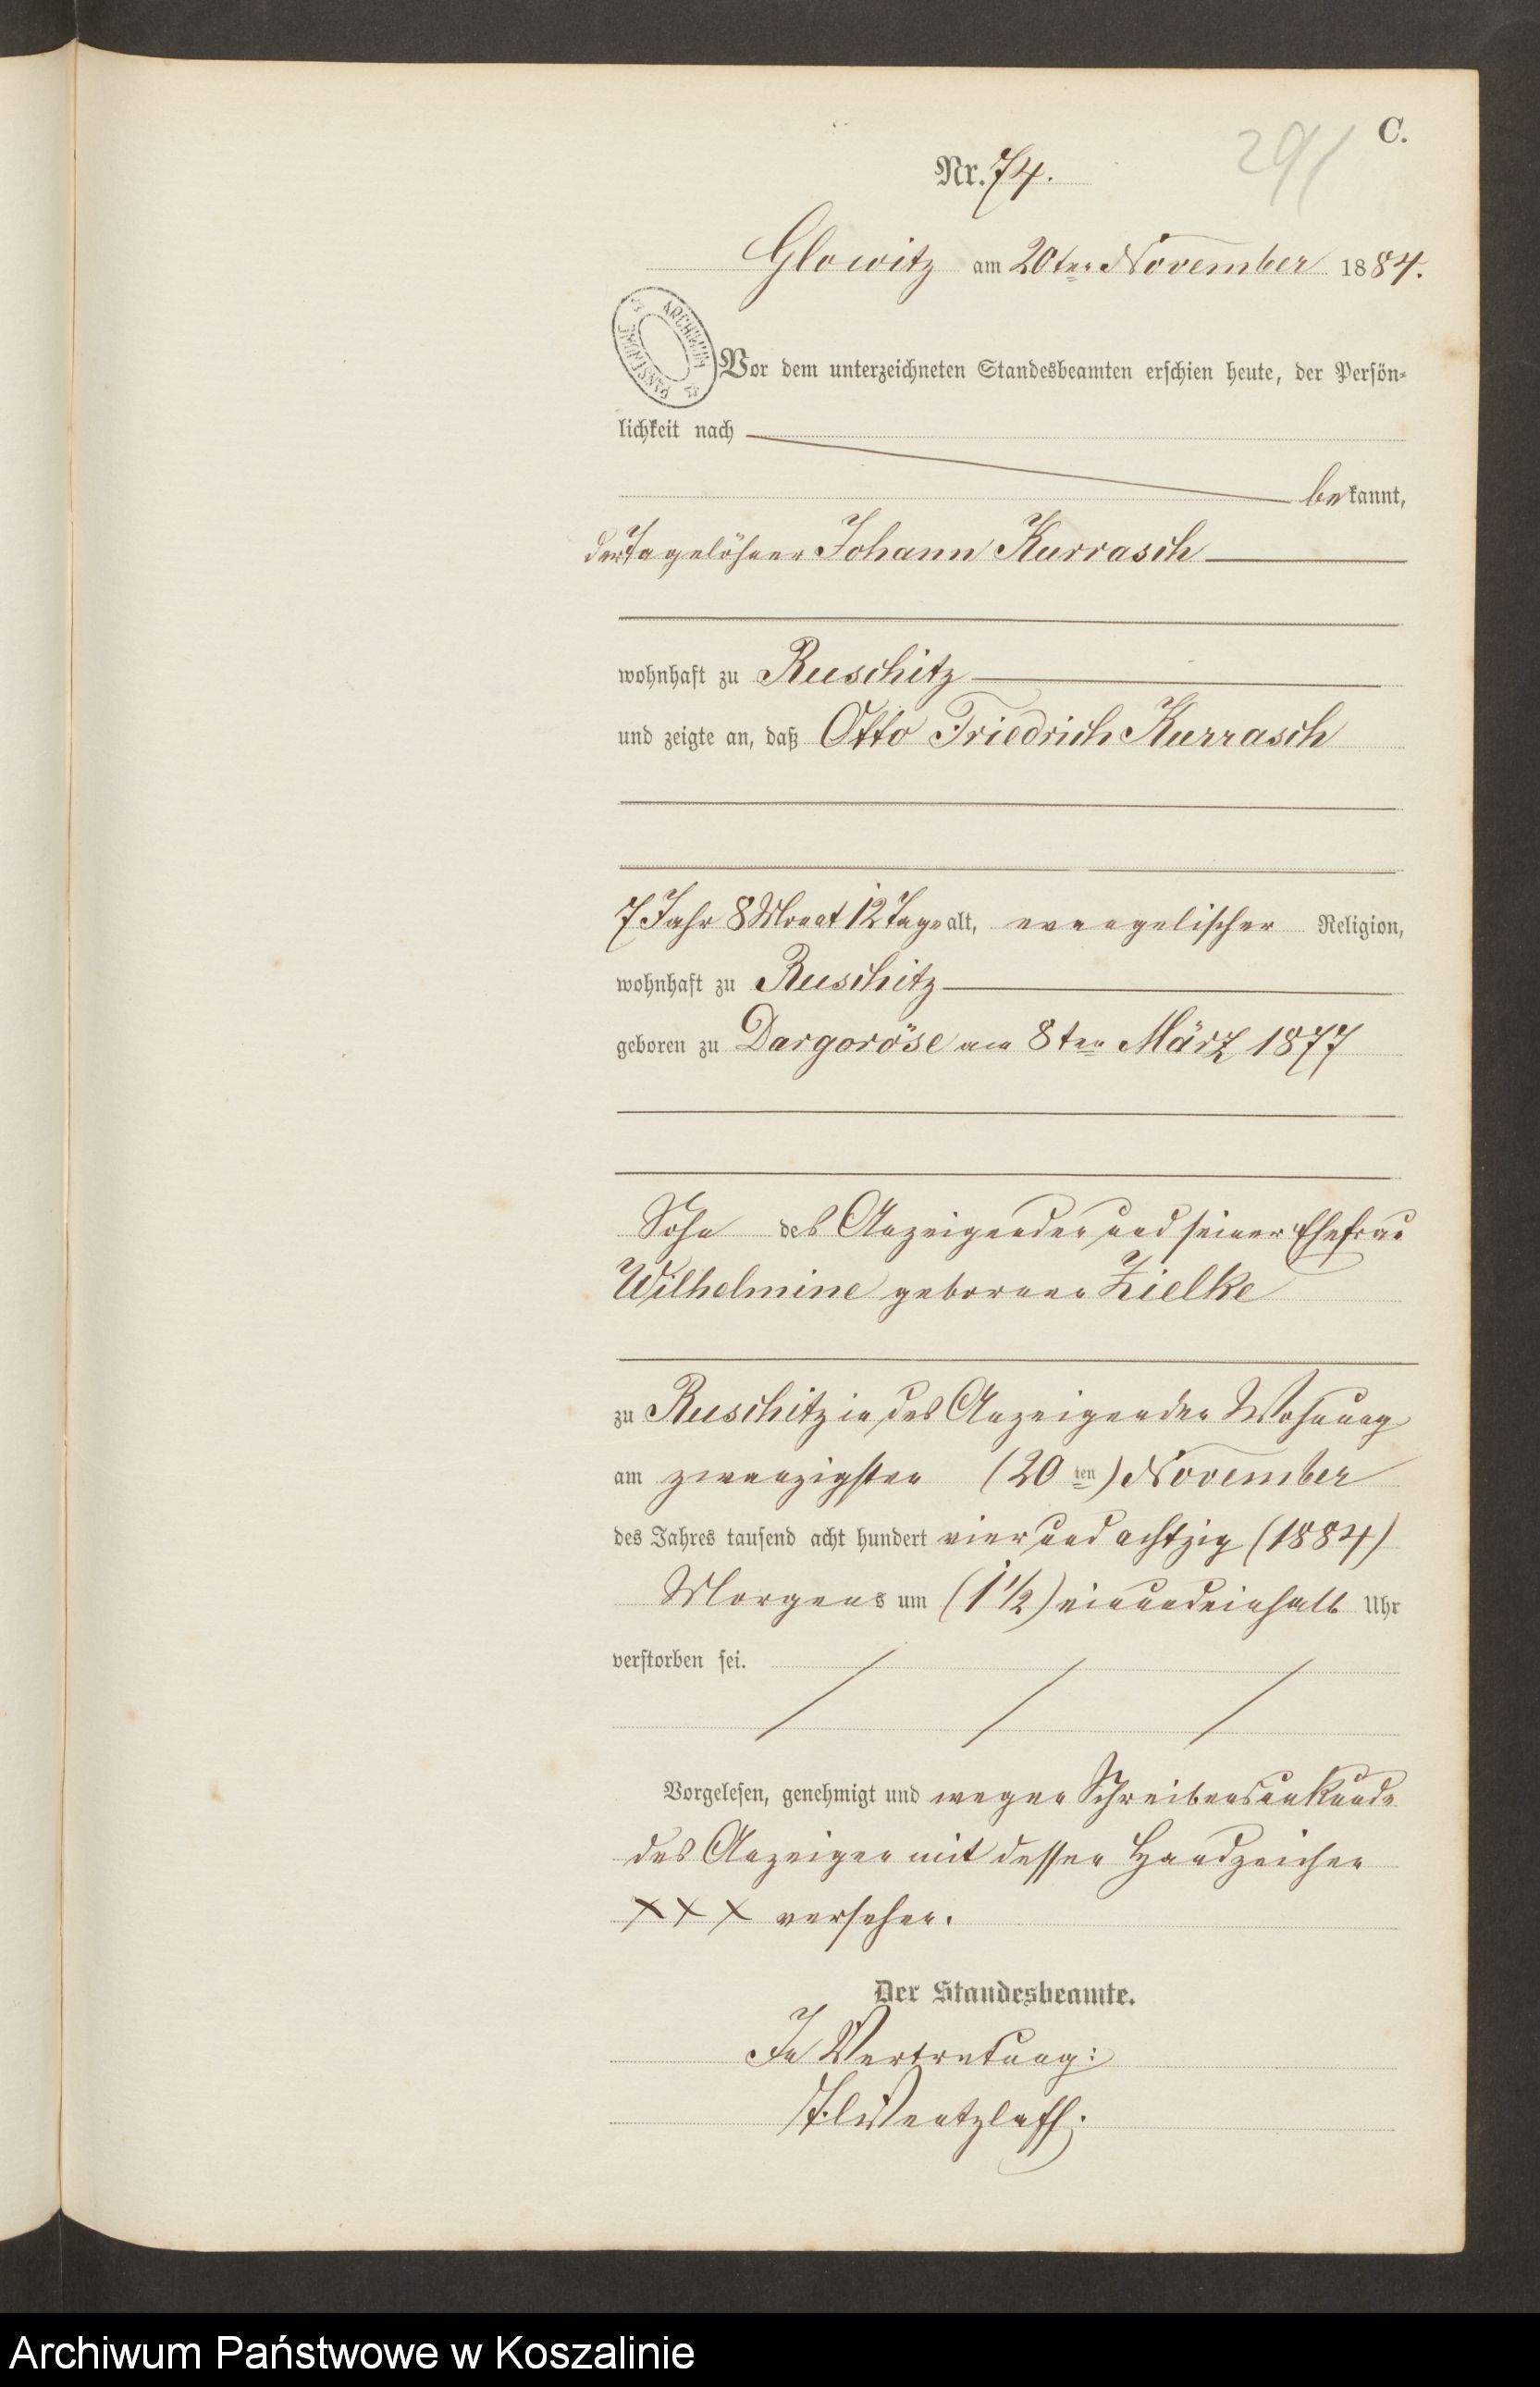 C.
291
Nr. 74.
Glowitz am 20ten November 1884.
ARCHIWUM PAŃSTWOWE
Vor dem unterzeichneten Standesbeamten erschien heute, der Persön-
lichkeit nach
bekannt,
der Tagelöhner Johann Kurrasch
wohnhaft zu Ruschitz
und zeigte an, daß Otto Friedrich Kurrasch
7 Jahr 8 Monat 12 Tage alt, evangelischer Religion,
wohnhaft zu Ruschitz
geboren zu Dargoröse am 8ten März 1877
Sohn des Anzeigenden und seiner Ehefrau
Wilhelmine geborenen Zielke
zu Ruschitz in des Anzeigenden Wohnung
am zwanzigsten (20ten) November
des Jahres tausend acht hundert vier und achtzig (1884)
Morgens um (1 1/2) einundeinhalb Uhr
verstorben sei.
Vorgelesen, genehmigt und wegen Schreibensunkunde
des Anzeigen mit dessen Handzeichen
XXX versehen.
Der Standesbeamte.
In Vertretung:
Wentzlaff.
Archiwum Państwowe w Koszalinie